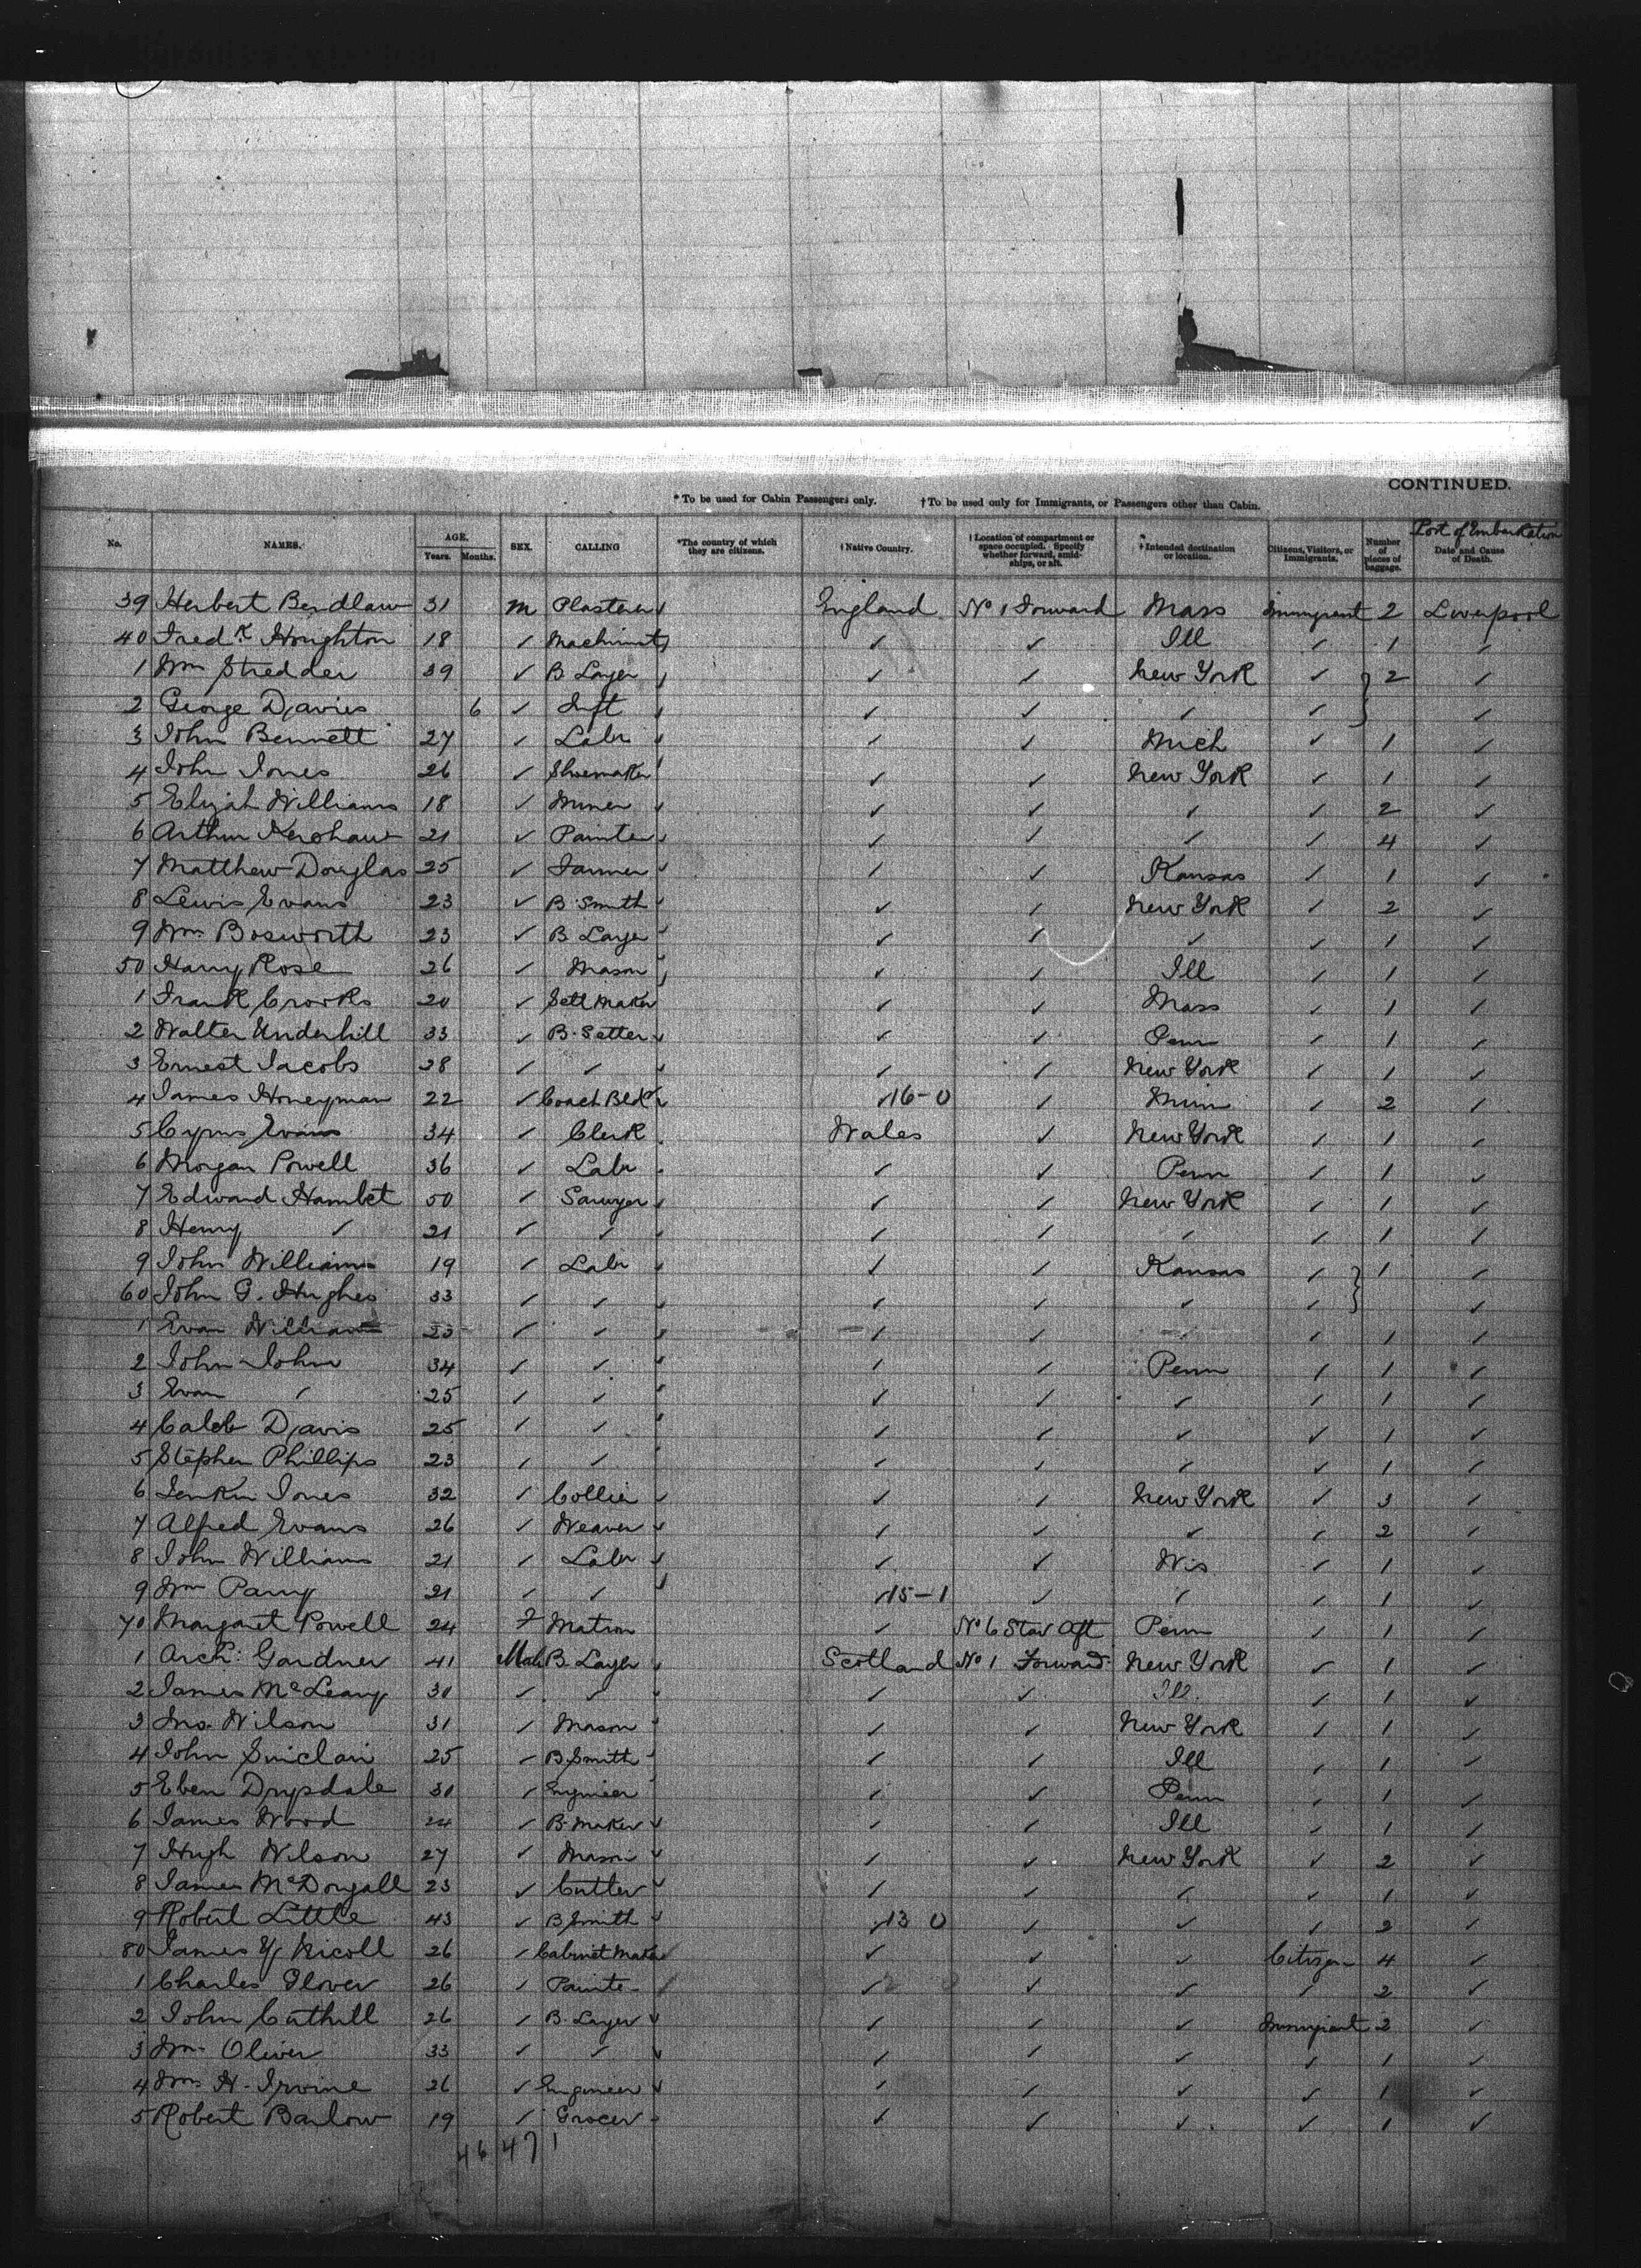 CONTINUED.
* To be used for Cabin Passengers only. † To be used only for Immigrants, or Passengers other than Cabin.
Port of Embarkation
No. NAMES. AGE. Years. Months. SEX. CALLING *The country of which they are citizens. † Native Country. † Location of compartment or space occupied. Specify whether forward, amidships, or aft. † Intended destination or location. Citizens, Visitors, or Immigrants. Number of pieces of baggage. Date and Cause of Death.
39 Herbert 31 m Plasterer England No 1 Forward Mass Immigrant 2 Liverpool
40 Fredk Houghton 18 ✓ Machinist ✓ ✓ Ill ✓ 1 ✓
1 Wm Stredder 39 ✓ B Layer ✓ ✓ New York ✓ 2 ✓
2 George Davies 6 ✓ Inft ✓ ✓ ✓ ✓ ✓
3 John Bennett 27 ✓ Labr ✓ ✓ Mich ✓ 1 ✓
4 John Jones 26 ✓ Shoemaker ✓ ✓ New York ✓ 1 ✓
5 Elijah Williams 18 ✓ Miner ✓ ✓ ✓ ✓ 2 ✓
6 Arthur Kershaw 21 ✓ Painter ✓ ✓ ✓ ✓ 4 ✓
7 Matthew Douglas 25 ✓ Farmer ✓ ✓ Kansas ✓ 1 ✓
8 Lewis Evans 23 ✓ B. Smith ✓ ✓ New York ✓ 2 ✓
9 Wm Bosworth 23 ✓ B Layer ✓ ✓ ✓ ✓ 1 ✓
50 Harry Rose 26 ✓ Mason ✓ ✓ Ill ✓ 1 ✓
1 Frank Crooks 20 ✓ Sett Maker ✓ ✓ Mass ✓ 1 ✓
2 Walter Underhill 33 ✓ B. Setter ✓ ✓ Penn ✓ 1 ✓
3 Ernest Jacobs 28 ✓ ✓ ✓ ✓ New York ✓ 1 ✓
4 James Honeyman 22 ✓ Coach Bldr 16-0 ✓ Minn ✓ 2 ✓
5 Cyrus Evans 34 ✓ Clerk Wales ✓ New York ✓ 1 ✓
6 Morgan Powell 36 ✓ Labr ✓ ✓ Penn ✓ 1 ✓
7 Edward Hamlet 50 ✓ Sawyer ✓ ✓ New York ✓ 1 ✓
8 Henry ✓ 21 ✓ ✓ ✓ ✓ ✓ ✓ 1 ✓
9 John Williams 19 ✓ Labr ✓ ✓ Kansas ✓ 1 ✓
60 John G. Hughes 33 ✓ ✓ ✓ ✓ ✓ ✓ ✓
1 Evan Williams 23 ✓ ✓ ✓ ✓ ✓ ✓ 1 ✓
2 John John 34 ✓ ✓ ✓ ✓ Penn ✓ 1 ✓
3 Evan ✓ 25 ✓ ✓ ✓ ✓ ✓ ✓ 1 ✓
4 Caleb Davis 25 ✓ ✓ ✓ ✓ ✓ ✓ 1 ✓
5 Stephen Phillips 23 ✓ ✓ ✓ ✓ ✓ ✓ 1 ✓
6 Jenkin Jones 32 ✓ Collier ✓ ✓ New York ✓ 3 ✓
7 Alfred Evans 26 ✓ Weaver ✓ ✓ ✓ ✓ 2 ✓
8 John Williams 21 ✓ Labr ✓ ✓ Wis ✓ 1 ✓
9 Wm Parry 21 ✓ ✓ 15-1 ✓ ✓ ✓ 1 ✓
70 Margaret Powell 24 F Matron ✓ No 6 Star Aft Penn ✓ 1 ✓
1 Archd: Gardner 41 Male B. Layer Scotland No 1 Forward New York ✓ 1 ✓
2 James McLeary 30 ✓ ✓ ✓ ✓ Ill. ✓ 1 ✓
3 Jno. Wilson 31 ✓ Mason ✓ ✓ New York ✓ 1 ✓
4 John Sinclair 25 ✓ B. Smith ✓ ✓ Ill ✓ 1 ✓
5 Eben Drysdale 30 ✓ Engineer ✓ ✓ Penn ✓ 1 ✓
6 James Wood 24 ✓ B. Maker ✓ ✓ Ill ✓ 1 ✓
7 Hugh Wilson 27 ✓ Mason ✓ ✓ New York ✓ 2 ✓
8 James McDougall 23 ✓ Cutter ✓ ✓ ✓ ✓ 1 ✓
9 Robert Little 43 ✓ B Smith 13 0 ✓ ✓ ✓ 2 ✓
80 James Y Nicoll 26 ✓ Cabinet Maker ✓ ✓ ✓ Citizen 4 ✓
1 Charles Glover 26 ✓ Painter ✓ ✓ ✓ ✓ 2 ✓
2 John Cuthill 26 ✓ B. Layer ✓ ✓ ✓ Immigrant 2 ✓
3 Wm. Oliver 33 ✓ ✓ ✓ ✓ ✓ ✓ 1 ✓
4 Wm H. Irvine 26 ✓ Engineer ✓ ✓ ✓ ✓ 1 ✓
5 Robert Barlow 19 ✓ Grocer ✓ ✓ ✓ ✓ 1 ✓
46 47 1